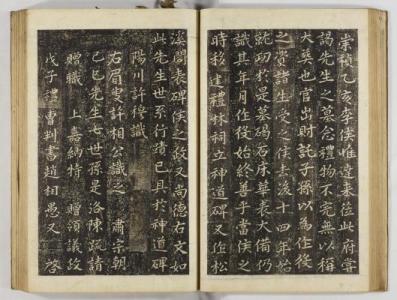 崇禎乙亥李侯惟達來莅此府嘗
謁先生之墓念禮物不完無以稱
大奬也官出財託子孫以為役
之資諸生受之侯去後十四年始
就功於是墓碣石床華表大備仍
識其年月役始終善乎當侯之
時移建禮林祠立神道碑又作松
溪閣表碑侯之敎又尚德右文如
此先生世系行蹟已具於神道碑
陽川許穆識
右眉叟許相公識之 肅宗朝
己巳先生七世孫是洛陳疏請
贈職 上嘉納特 贈領議政
戊子禮曹判書趙相愚又 啓